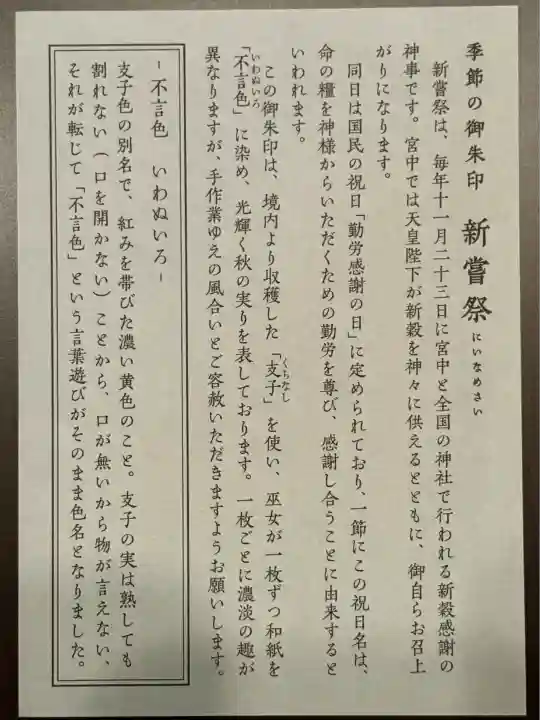 季節の御朱印 新嘗祭 にいなめさい
新嘗祭は、毎年十一月二十三日に宮中と全国の神社で行われる新穀感謝の
神事です。宮中では天皇陛下が新穀を神々に供えるとともに、御自らお召上
がりになります。
同日は国民の祝日「勤労感謝の日」に定められており、一節にこの祝日名は、
命の糧を神様からいただくための勤労を尊び、感謝し合うことに由来すると
いわれます。
この御朱印は、境内より収穫した「支子」を使い、巫女が一枚ずつ和紙を
くちなし
「不言色」に染め、光輝く秋の実りを表しております。一枚ごとに濃淡の趣が
いわぬいろ
異なりますが、手作業ゆえの風合いとご容赦いただきますようお願いします。
- 不言色 いわぬいろ -
支子色の別名で、紅みを帯びた濃い黄色のこと。支子の実は熟しても
割れない(口を開かない)ことから、口が無いから物が言えない、
それが転じて「不言色」という言葉遊びがそのまま色名となりました。